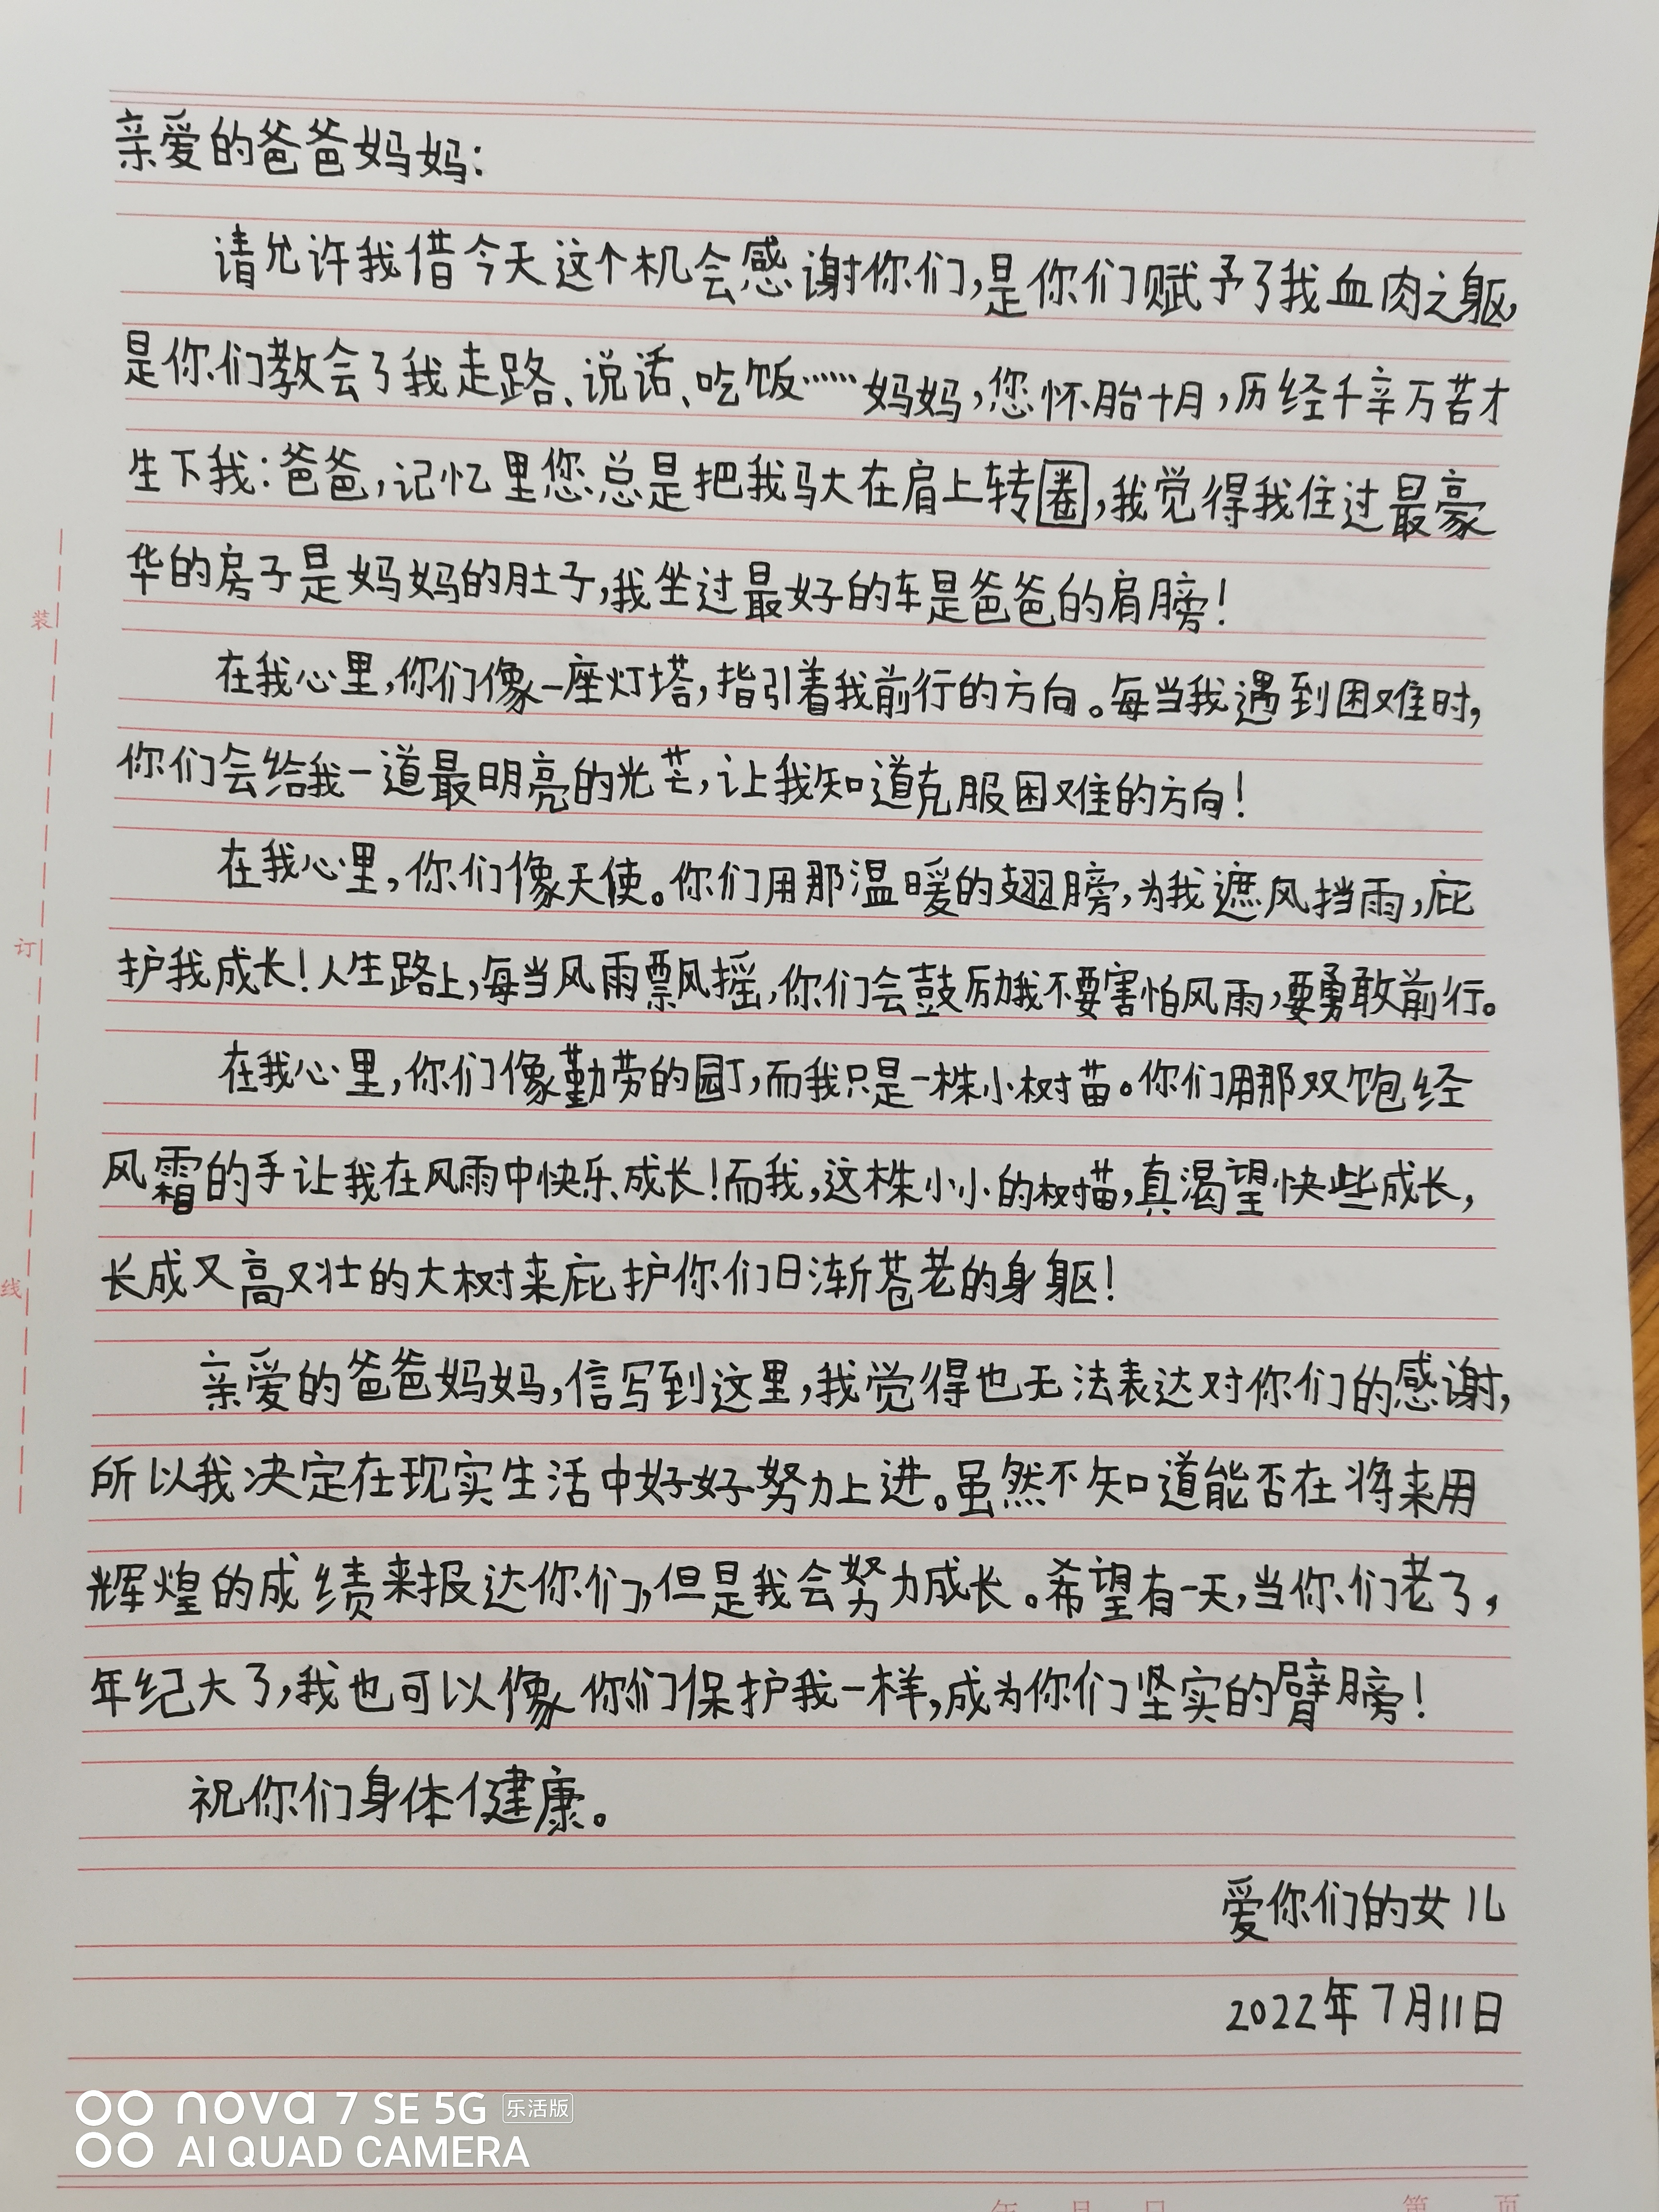 亲爱的爸爸妈妈:
请允许我借今天这个机会感谢你们,是你们赋予了我血肉之躯,
是你们教会了我走路、说话、吃饭……妈妈,您怀胎十月,历经千辛万苦才
生下我:爸爸,记忆里您总是把我驮在肩上转圈,我觉得我住过最豪
华的房子是妈妈的肚子,我坐过最好的车是爸爸的肩膀!
在我心里,你们像一座灯塔,指引着我前行的方向。每当我遇到困难时,
你们会给我一道最明亮的光芒,让我知道克服困难的方向!
在我心里,你们像天使。你们用那温暖的翅膀,为我遮风挡雨,庇
护我成长!人生路上,每当风雨飘摇,你们会鼓励我不要害怕风雨,要勇敢前行。
在我心里,你们像勤劳的园丁,而我只是一株小树苗。你们用那双饱经
风霜的手让我在风雨中快乐成长!而我,这株小小的树描,真渴望快些成长,
长成又高又壮的大树来庇护你们日渐苍老的身躯!
亲爱的爸爸妈妈,信写到这里,我觉得也无法表达对你们的感谢,
所以我决定在现实生活中好好努力上进。虽然不知道能否在将来用
辉煌的成绩来报达你们,但是我会努力成长。希望有一天,当你们老了,
年纪大了,我也可以像你们保护我一样,成为你们坚实的臂膀!
祝你们身体健康。
爱你们的女儿
2022年7月11日
装
订
线
nova 7 SE 5G 乐活版
AI QUAD CAMERA
年 月 日 第 页